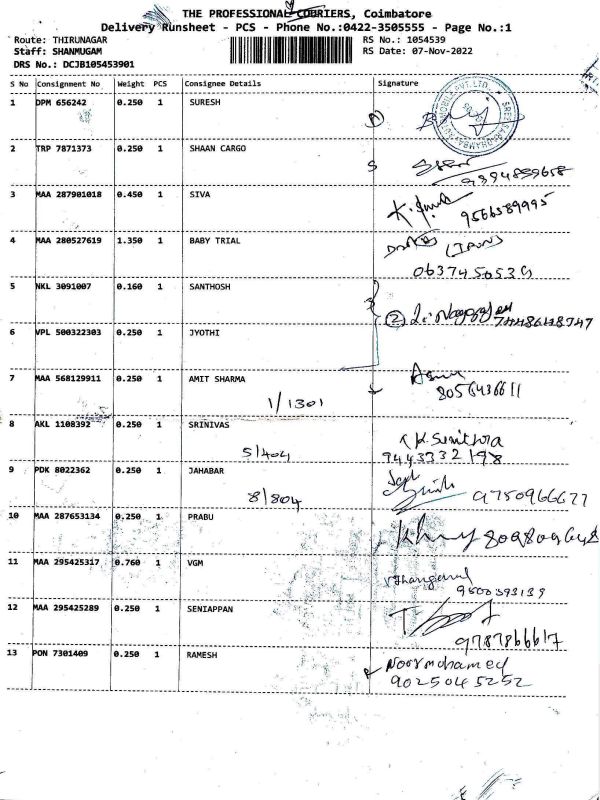 THE PROFESSIONAL COURIERS, Coimbatore
Delivery Runsheet - PCS - Phone No.:0422-3505555 - Page No.:1
Route: THIRUNAGAR RS No.: 1054539
Staff: SHANMUGAM RS Date: 07-Nov-2022
DRS No.: DCJB105453901
S No Consignment No Weight PCS Consignee Details Signature
1 DPM 656242 0.250 1 SURESH
2 TRP 7871373 0.250 1 SHAAN CARGO
3 MAA 287901018 0.450 1 SIVA
9566389995
4 MAA 280527619 1.350 1 BABY TRIAL
0637450539
5 NKL 3091007 0.160 1 SANTHOSH
2
6 VPL 500322303 0.250 1 JYOTHI
7 MAA 568129911 0.250 1 AMIT SHARMA
1/1301 8056436611
8 AKL 1108392 0.250 1 SRINIVAS
5/404 9443332198
9 PDK 8022362 0.250 1 JAHABAR
8/804 9750966677
10 MAA 287653134 0.250 1 PRABU
11 MAA 295425317 0.760 1 VGM
9500393139
12 MAA 295425289 0.250 1 SENIAPPAN
9787866617
13 PON 7301409 0.250 1 RAMESH Noormohamed
9025045252